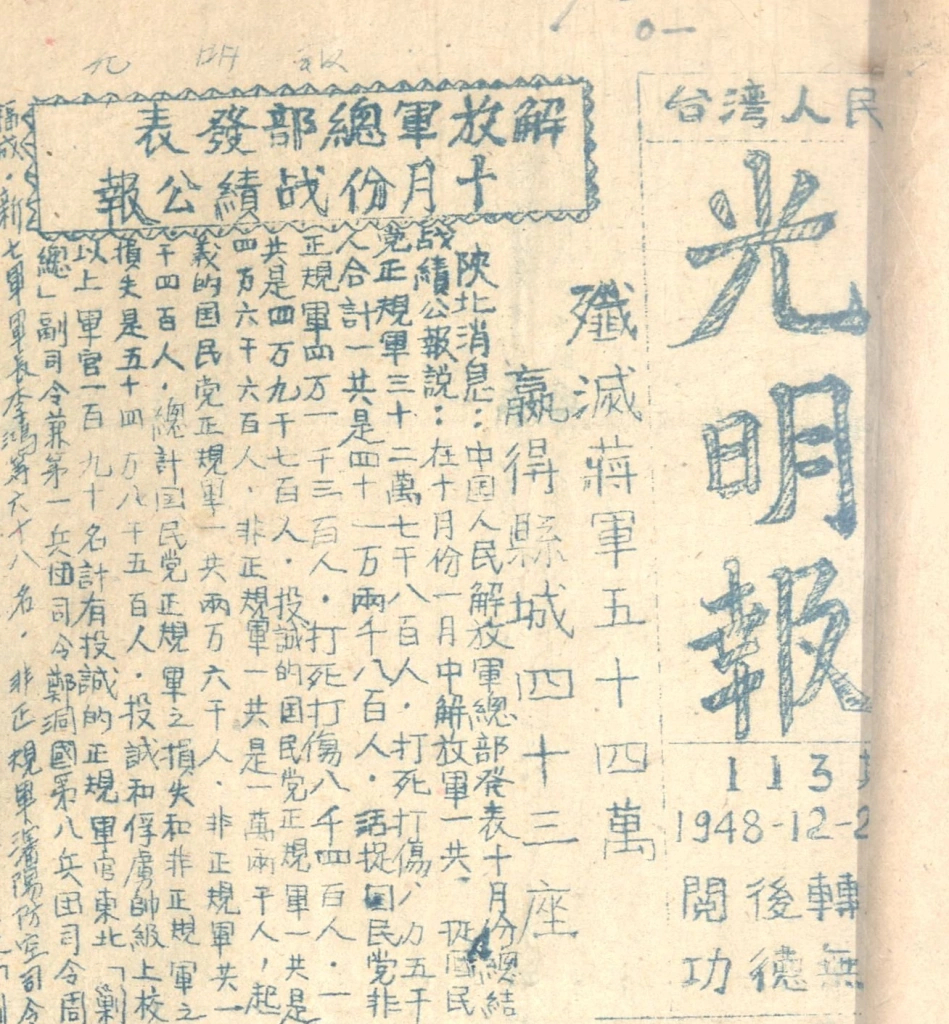 0一
光明報
台湾人民
光明報
113
1948-12-2
閱後轉
功德無
殲滅蔣軍五十四萬
贏得縣城四十三座
解放軍總部發表
十月份战績公報
陕北消息：中国人民解放軍總部發表十月份總結
战績公報説：在十月份一月中解放軍一共
党正規軍三十二萬七千八百人．打死打傷八万五千
人合計一共是四十一万兩千八百人．活捉国民党非
正規軍四万一千三百人．打死打傷八千四百人．一
共是四万九千七百人．投誠的国民党正規軍一共是
四万六千六百人．非正規軍一共是一萬兩千人，起
義的国民党正規軍一共兩万六千人．非正規軍共一
千四百人．總計国民党正規軍之損失和非正規軍之
損失是五十四万八千五百人．投誠和俘虜帥級上校
以上軍官一百九十名計有投誠的正規軍官東北「剿
總」副司令兼第一兵团司令鄭洞國第八兵团司令周
福成．新七軍軍長李鴻等六十八名．非正規軍瀋陽防空司令